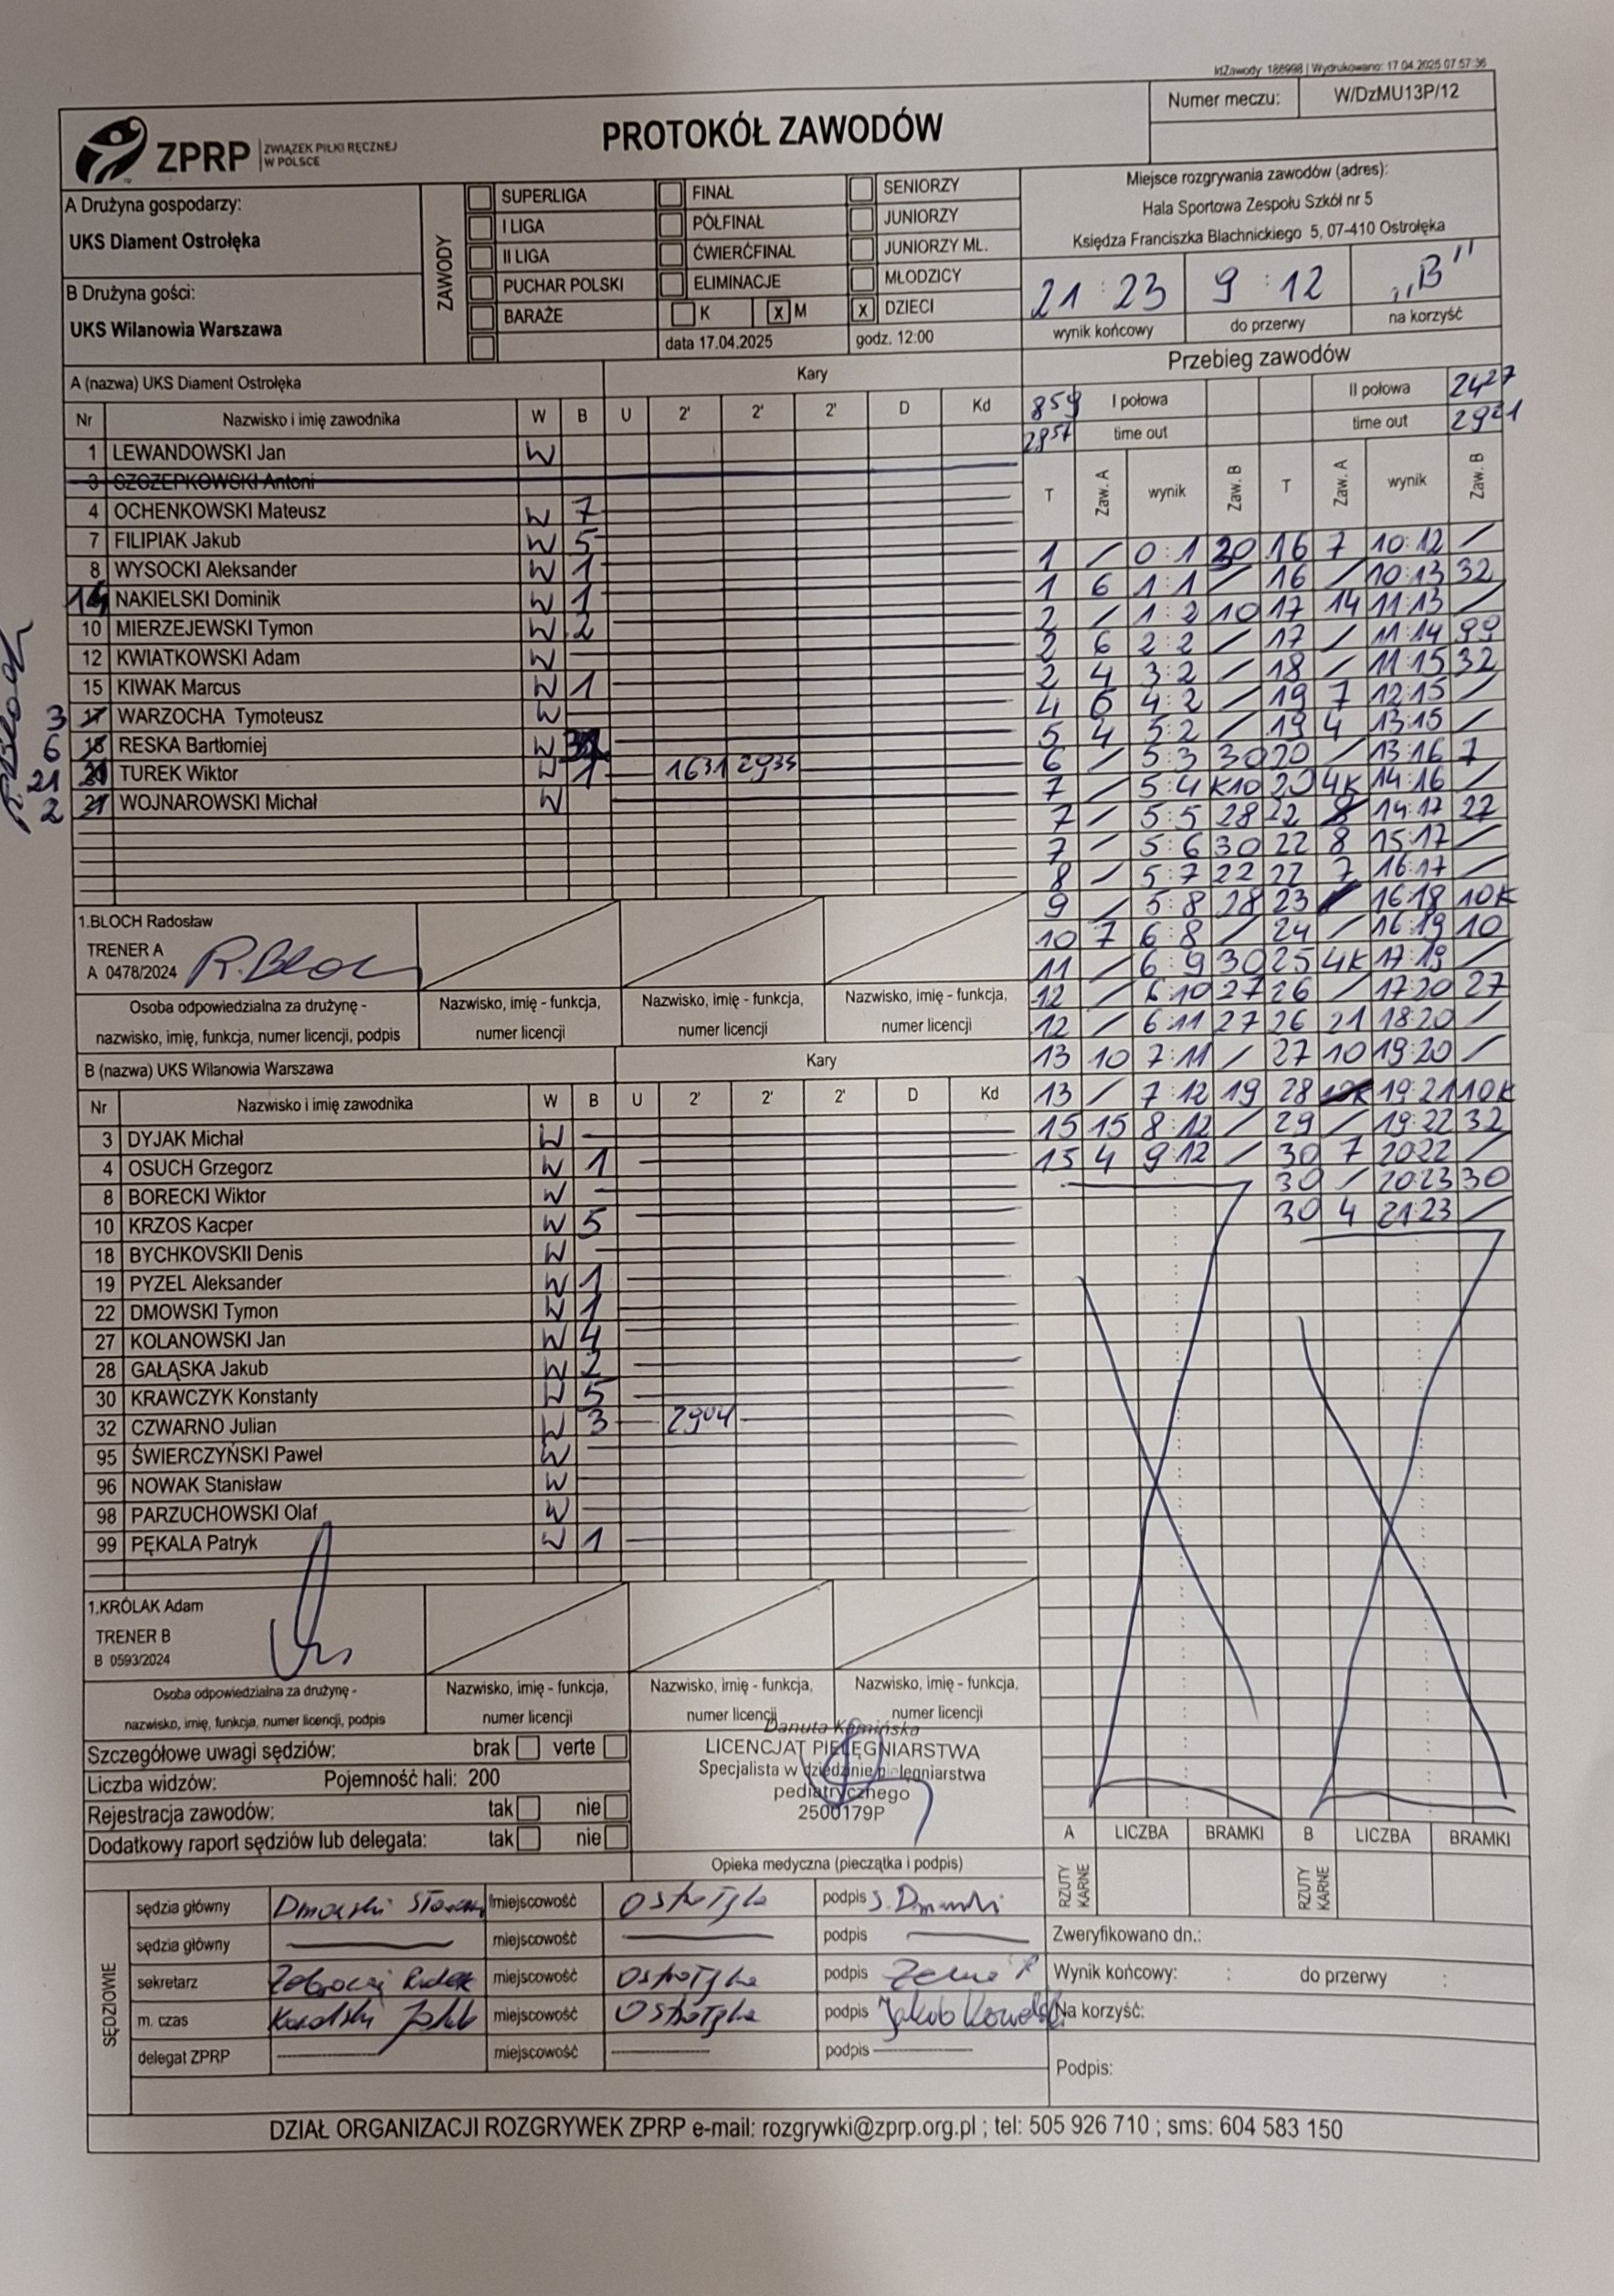 IdZawody: 186998 | Wydrukowano: 17.04.2025 07:57:36
Numer meczu: W/DzMU13P/12
ZPRP ZWIĄZEK PIŁKI RĘCZNEJ W POLSCE
PROTOKÓŁ ZAWODÓW
A Drużyna gospodarzy:
UKS Diament Ostrołęka
B Drużyna gości:
UKS Wilanowia Warszawa
ZAWODY
SUPERLIGA FINAŁ SENIORZY
I LIGA PÓŁFINAŁ JUNIORZY
II LIGA ĆWIERĆFINAŁ JUNIORZY MŁ.
PUCHAR POLSKI ELIMINACJE MŁODZICY
BARAŻE K X M X DZIECI
data 17.04.2025 godz. 12:00
Miejsce rozgrywania zawodów (adres):
Hala Sportowa Zespołu Szkół nr 5
Księdza Franciszka Blachnickiego 5, 07-410 Ostrołęka
21 : 23 9 : 12 „B”
wynik końcowy do przerwy na korzyść
A (nazwa) UKS Diament Ostrołęka Kary
Nr Nazwisko i imię zawodnika W B U 2' 2' 2' D Kd
1 LEWANDOWSKI Jan W
3 SZCZEPKOWSKI Antoni
4 OCHENKOWSKI Mateusz W 7
7 FILIPIAK Jakub W 5
8 WYSOCKI Aleksander W 1
14 NAKIELSKI Dominik W 1
10 MIERZEJEWSKI Tymon W 2
12 KWIATKOWSKI Adam W
15 KIWAK Marcus W 1
3 17 WARZOCHA Tymoteusz W
6 18 RESKA Bartłomiej W 3
21 TUREK Wiktor W 1 1631 2935
2 21 WOJNAROWSKI Michał W
R.Bloch
1.BLOCH Radosław
TRENER A
A 0478/2024 R.Bloch
Osoba odpowiedzialna za drużynę - nazwisko, imię, funkcja, numer licencji, podpis
Nazwisko, imię - funkcja, numer licencji
Nazwisko, imię - funkcja, numer licencji
Nazwisko, imię - funkcja, numer licencji
B (nazwa) UKS Wilanowia Warszawa Kary
Nr Nazwisko i imię zawodnika W B U 2' 2' 2' D Kd
3 DYJAK Michał W
4 OSUCH Grzegorz W 1
8 BORECKI Wiktor W
10 KRZOS Kacper W 5
18 BYCHKOVSKII Denis W
19 PYZEL Aleksander W 1
22 DMOWSKI Tymon W 1
27 KOLANOWSKI Jan W 4
28 GAŁĄSKA Jakub W 2
30 KRAWCZYK Konstanty W 5
32 CZWARNO Julian W 3 2904
95 ŚWIERCZYŃSKI Paweł W
96 NOWAK Stanisław W
98 PARZUCHOWSKI Olaf W
99 PĘKALA Patryk W 1
1.KRÓLAK Adam
TRENER B
B 0593/2024
Osoba odpowiedzialna za drużynę - nazwisko, imię, funkcja, numer licencji, podpis
Nazwisko, imię - funkcja, numer licencji
Nazwisko, imię - funkcja, numer licencji
Nazwisko, imię - funkcja, numer licencji
Przebieg zawodów
859 I połowa II połowa 2427
2857 time out time out 2921
T Zaw. A wynik Zaw. B T Zaw. A wynik Zaw. B
1 / 0:1 30 16 7 10:12 /
1 6 1:1 / 16 / 10:13 32
2 / 1:2 10 17 14 11:13 /
2 6 2:2 / 17 / 11:14 99
2 4 3:2 / 18 / 11:15 32
4 6 4:2 / 19 7 12:15 /
5 4 5:2 / 19 4 13:15 /
6 / 5:3 30 20 / 13:16 7
7 / 5:4 K10 20 4K 14:16 /
7 / 5:5 28 22 14:17 27
7 / 5:6 30 22 8 15:17 /
8 / 5:7 22 22 7 16:17 /
9 / 5:8 28 23 16:18 10K
10 7 6:8 / 24 / 16:19 10
11 / 6:9 30 25 4K 17:19 /
12 / 6:10 27 26 / 17:20 27
12 / 6:11 27 26 21 18:20 /
13 10 7:11 / 27 10 19:20 /
13 / 7:12 19 28 19:21 10K
15 15 8:12 / 29 / 19:22 32
15 4 9:12 / 30 7 20:22 /
30 / 20:23 30
30 4 21:23 /
Szczegółowe uwagi sędziów: brak verte
Liczba widzów: Pojemność hali: 200
Rejestracja zawodów: tak nie
Dodatkowy raport sędziów lub delegata: tak nie
Danuta Kamińska
LICENCJAT PIELĘGNIARSTWA
Specjalista w dziedzinie pielęgniarstwa
pediatrycznego
2500179P
Opieka medyczna (pieczątka i podpis)
A LICZBA BRAMKI B LICZBA BRAMKI
RZUTY KARNE RZUTY KARNE
SĘDZIOWIE
sędzia główny Dmowski miejscowość Ostrołęka podpis S. Dmowski
sędzia główny miejscowość podpis
sekretarz miejscowość Ostrołęka podpis
m. czas Kowalski Jakub miejscowość Ostrołęka podpis Jakub Kowalski
delegat ZPRP miejscowość podpis
Zweryfikowano dn.:
Wynik końcowy: : do przerwy :
Na korzyść:
Podpis:
DZIAŁ ORGANIZACJI ROZGRYWEK ZPRP e-mail: rozgrywki@zprp.org.pl ; tel: 505 926 710 ; sms: 604 583 150